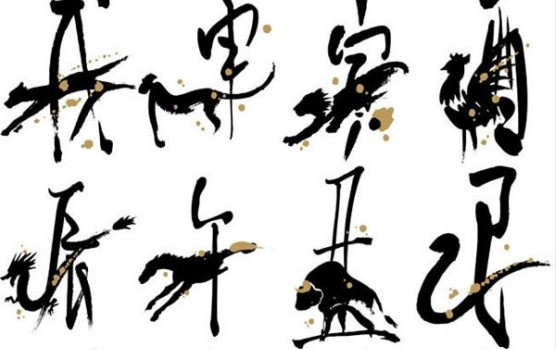 戌 申 寅 酉
辰 午 丑 巳